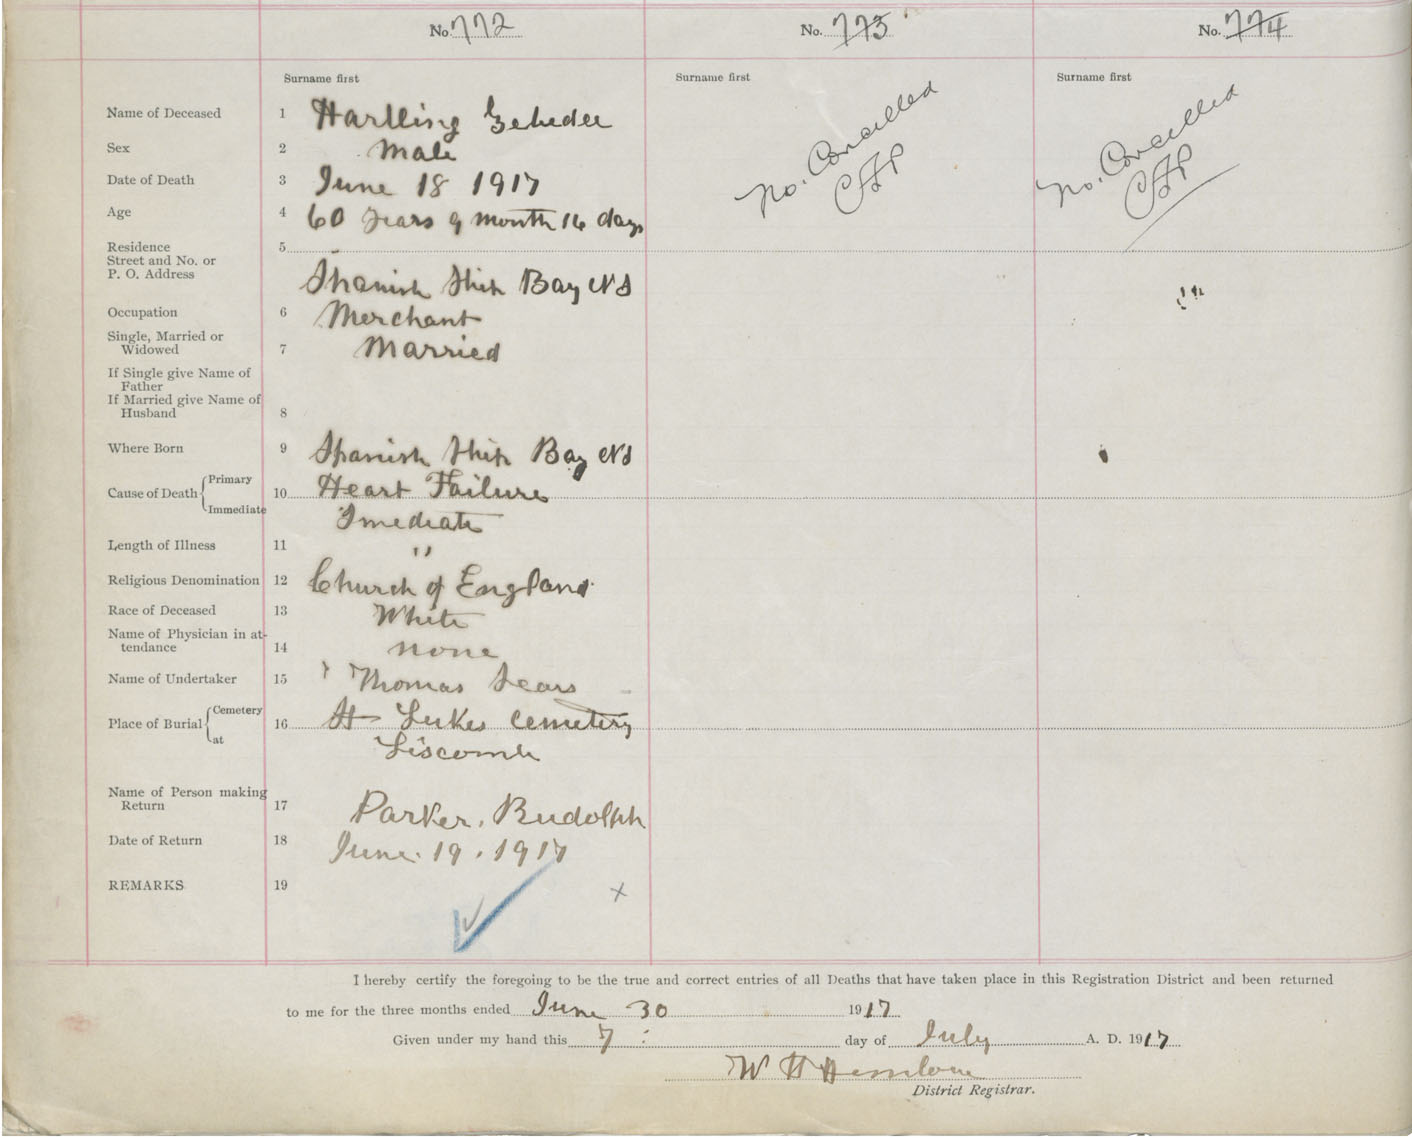 No. 772 No. 773 No. 774
Surname first Surname first Surname first
Name of Deceased 1 Hartling Zebedee
No. Cancelled
No. Cancelled
Sex 2 Male
Date of Death 3 June 18 1917
Age 4 60 years 9 month 14 days
Residence 5
Street and No. or
P. O. Address Spanish Ship Bay NS
Occupation 6 Merchant
Single, Married or
Widowed 7 Married
If Single give Name of
Father
If Married give Name of
Husband 8
Where Born 9 Spanish Ship Bay NS
Cause of Death Primary 10 Heart Failure
Immediate Imediate
Length of Illness 11 "
Religious Denomination 12 Church of England
Race of Deceased 13 White
Name of Physician in at-
tendance 14 none
Name of Undertaker 15 Thomas Sears
Place of Burial Cemetery 16 St Lukes Cemetery
at Liscomb
Name of Person making
Return 17 Parker, Rudolph
Date of Return 18 June 19, 1917
REMARKS 19 x
I hereby certify the foregoing to be the true and correct entries of all Deaths that have taken place in this Registration District and been returned
to me for the three months ended June 30 1917
Given under my hand this 7 day of July A. D. 1917
W H Hemlow
District Registrar.